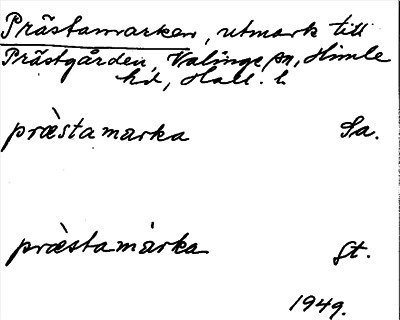 Prästamarken, utmark till
Prästgården, Valinge sn, Himle
hd, Hall. l.
præ̀stamarka Sa.
præ̀stamàrka St.
1949.